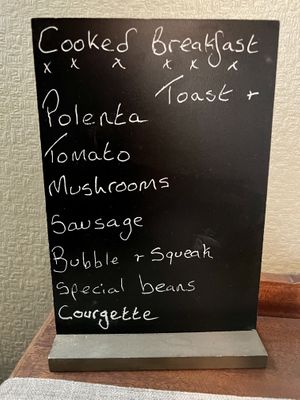 Cooked Breakfast
x x x x x x
Toast +
Polenta
Tomato
Mushrooms
Sausage
Bubble + Squeak
Special beans
Courgette